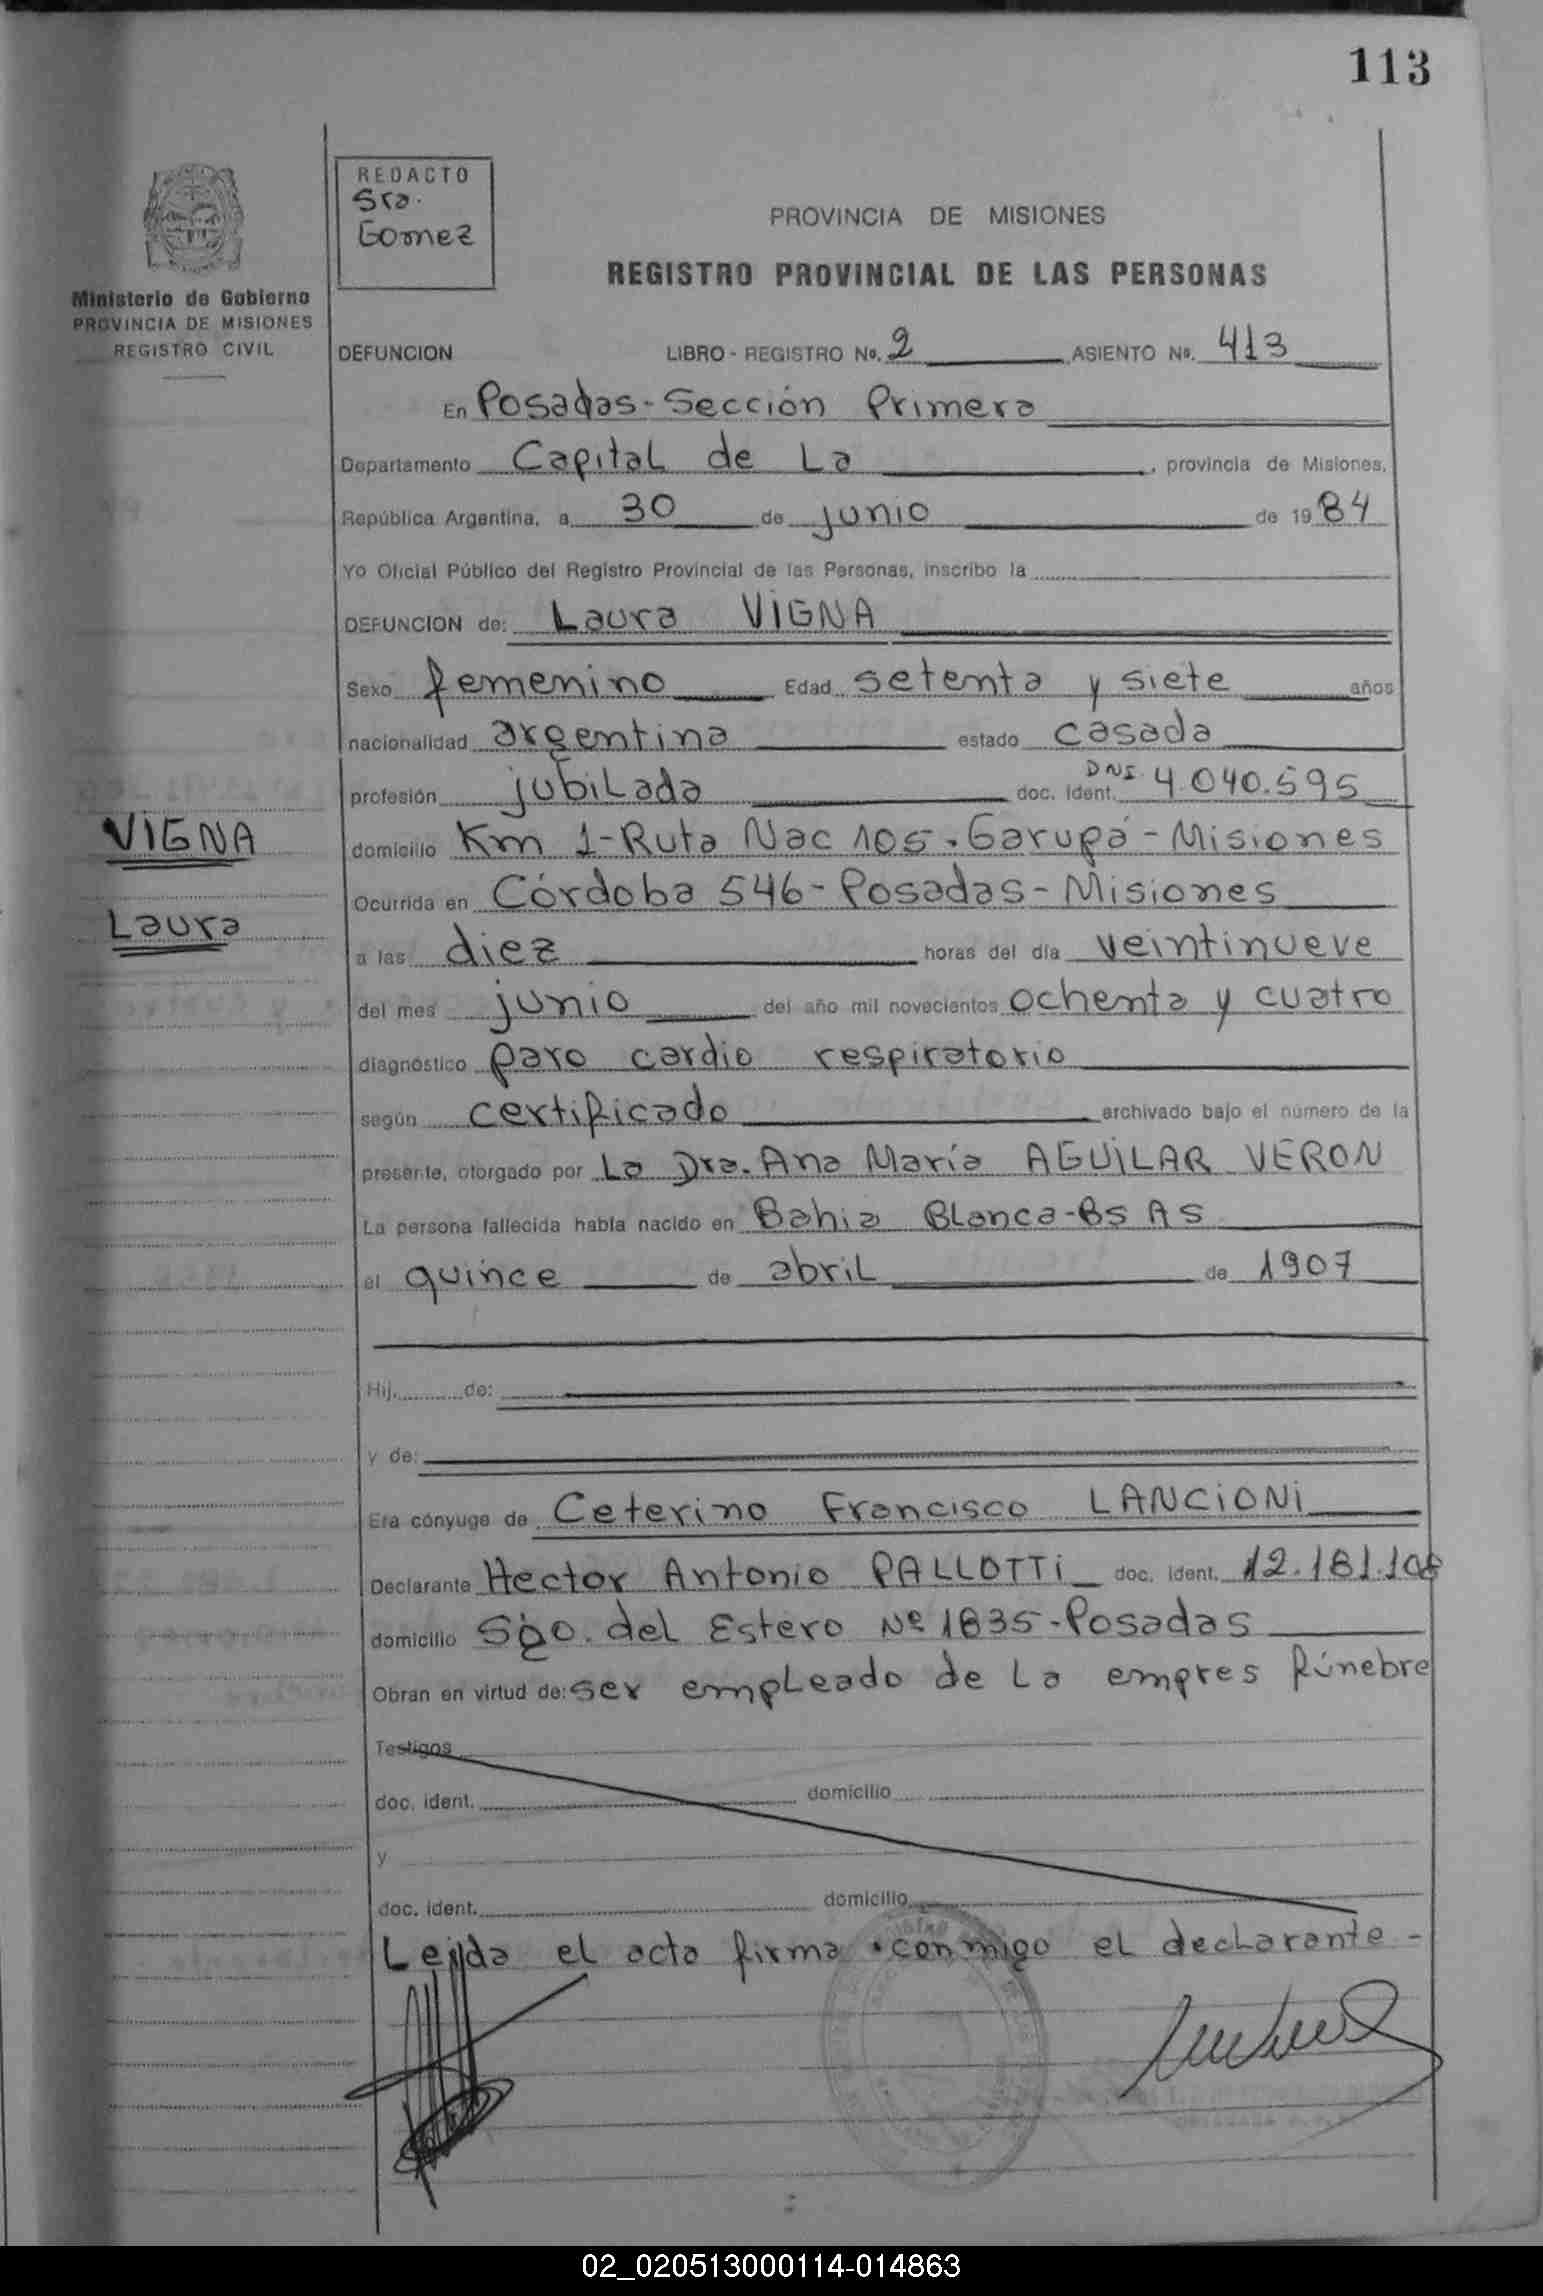 113
REDACTO
Sra.
Gomez
Ministerio de Gobierno
PROVINCIA DE MISIONES
REGISTRO CIVIL
PROVINCIA DE MISIONES
REGISTRO PROVINCIAL DE LAS PERSONAS
DEFUNCION LIBRO - REGISTRO No. 2 ASIENTO No. 413
En Posadas - Sección Primera
Departamento Capital de La, provincia de Misiones,
República Argentina, a 30 de junio de 1984
Yo Oficial Público del Registro Provincial de las Personas, inscribo la
DEFUNCION de: Laura VIGNA
Sexo femenino Edad setenta y siete años
nacionalidad argentina estado casada
profesión jubilada doc. ident. DNI. 4.040.595
VIGNA
Laura
domicilio Km 1-Ruta Nac 105. Garupá - Misiones
Ocurrida en Córdoba 546 - Posadas - Misiones
a las diez horas del día veintinueve
del mes junio del año mil novecientos ochenta y cuatro
diagnóstico paro cardio respiratorio
según certificado archivado bajo el número de la
presente, otorgado por La Dra. Ana María AGUILAR VERON
La persona fallecida había nacido en Bahia Blanca - Bs As
el quince de abril de 1907
Hij. de:
y de:
Era cónyuge de Ceterino Francisco LANCIONI
Declarante Hector Antonio PALLOTTI doc. ident. 12.181.108
domicilio Sgo. del Estero Nº 1835 - Posadas
Obran en virtud de: ser empleado de La empres fúnebre
Testigos
doc. ident. domicilio
y
doc. ident. domicilio
Leida el acta firma conmigo el declarante -
02_020513000114-014863